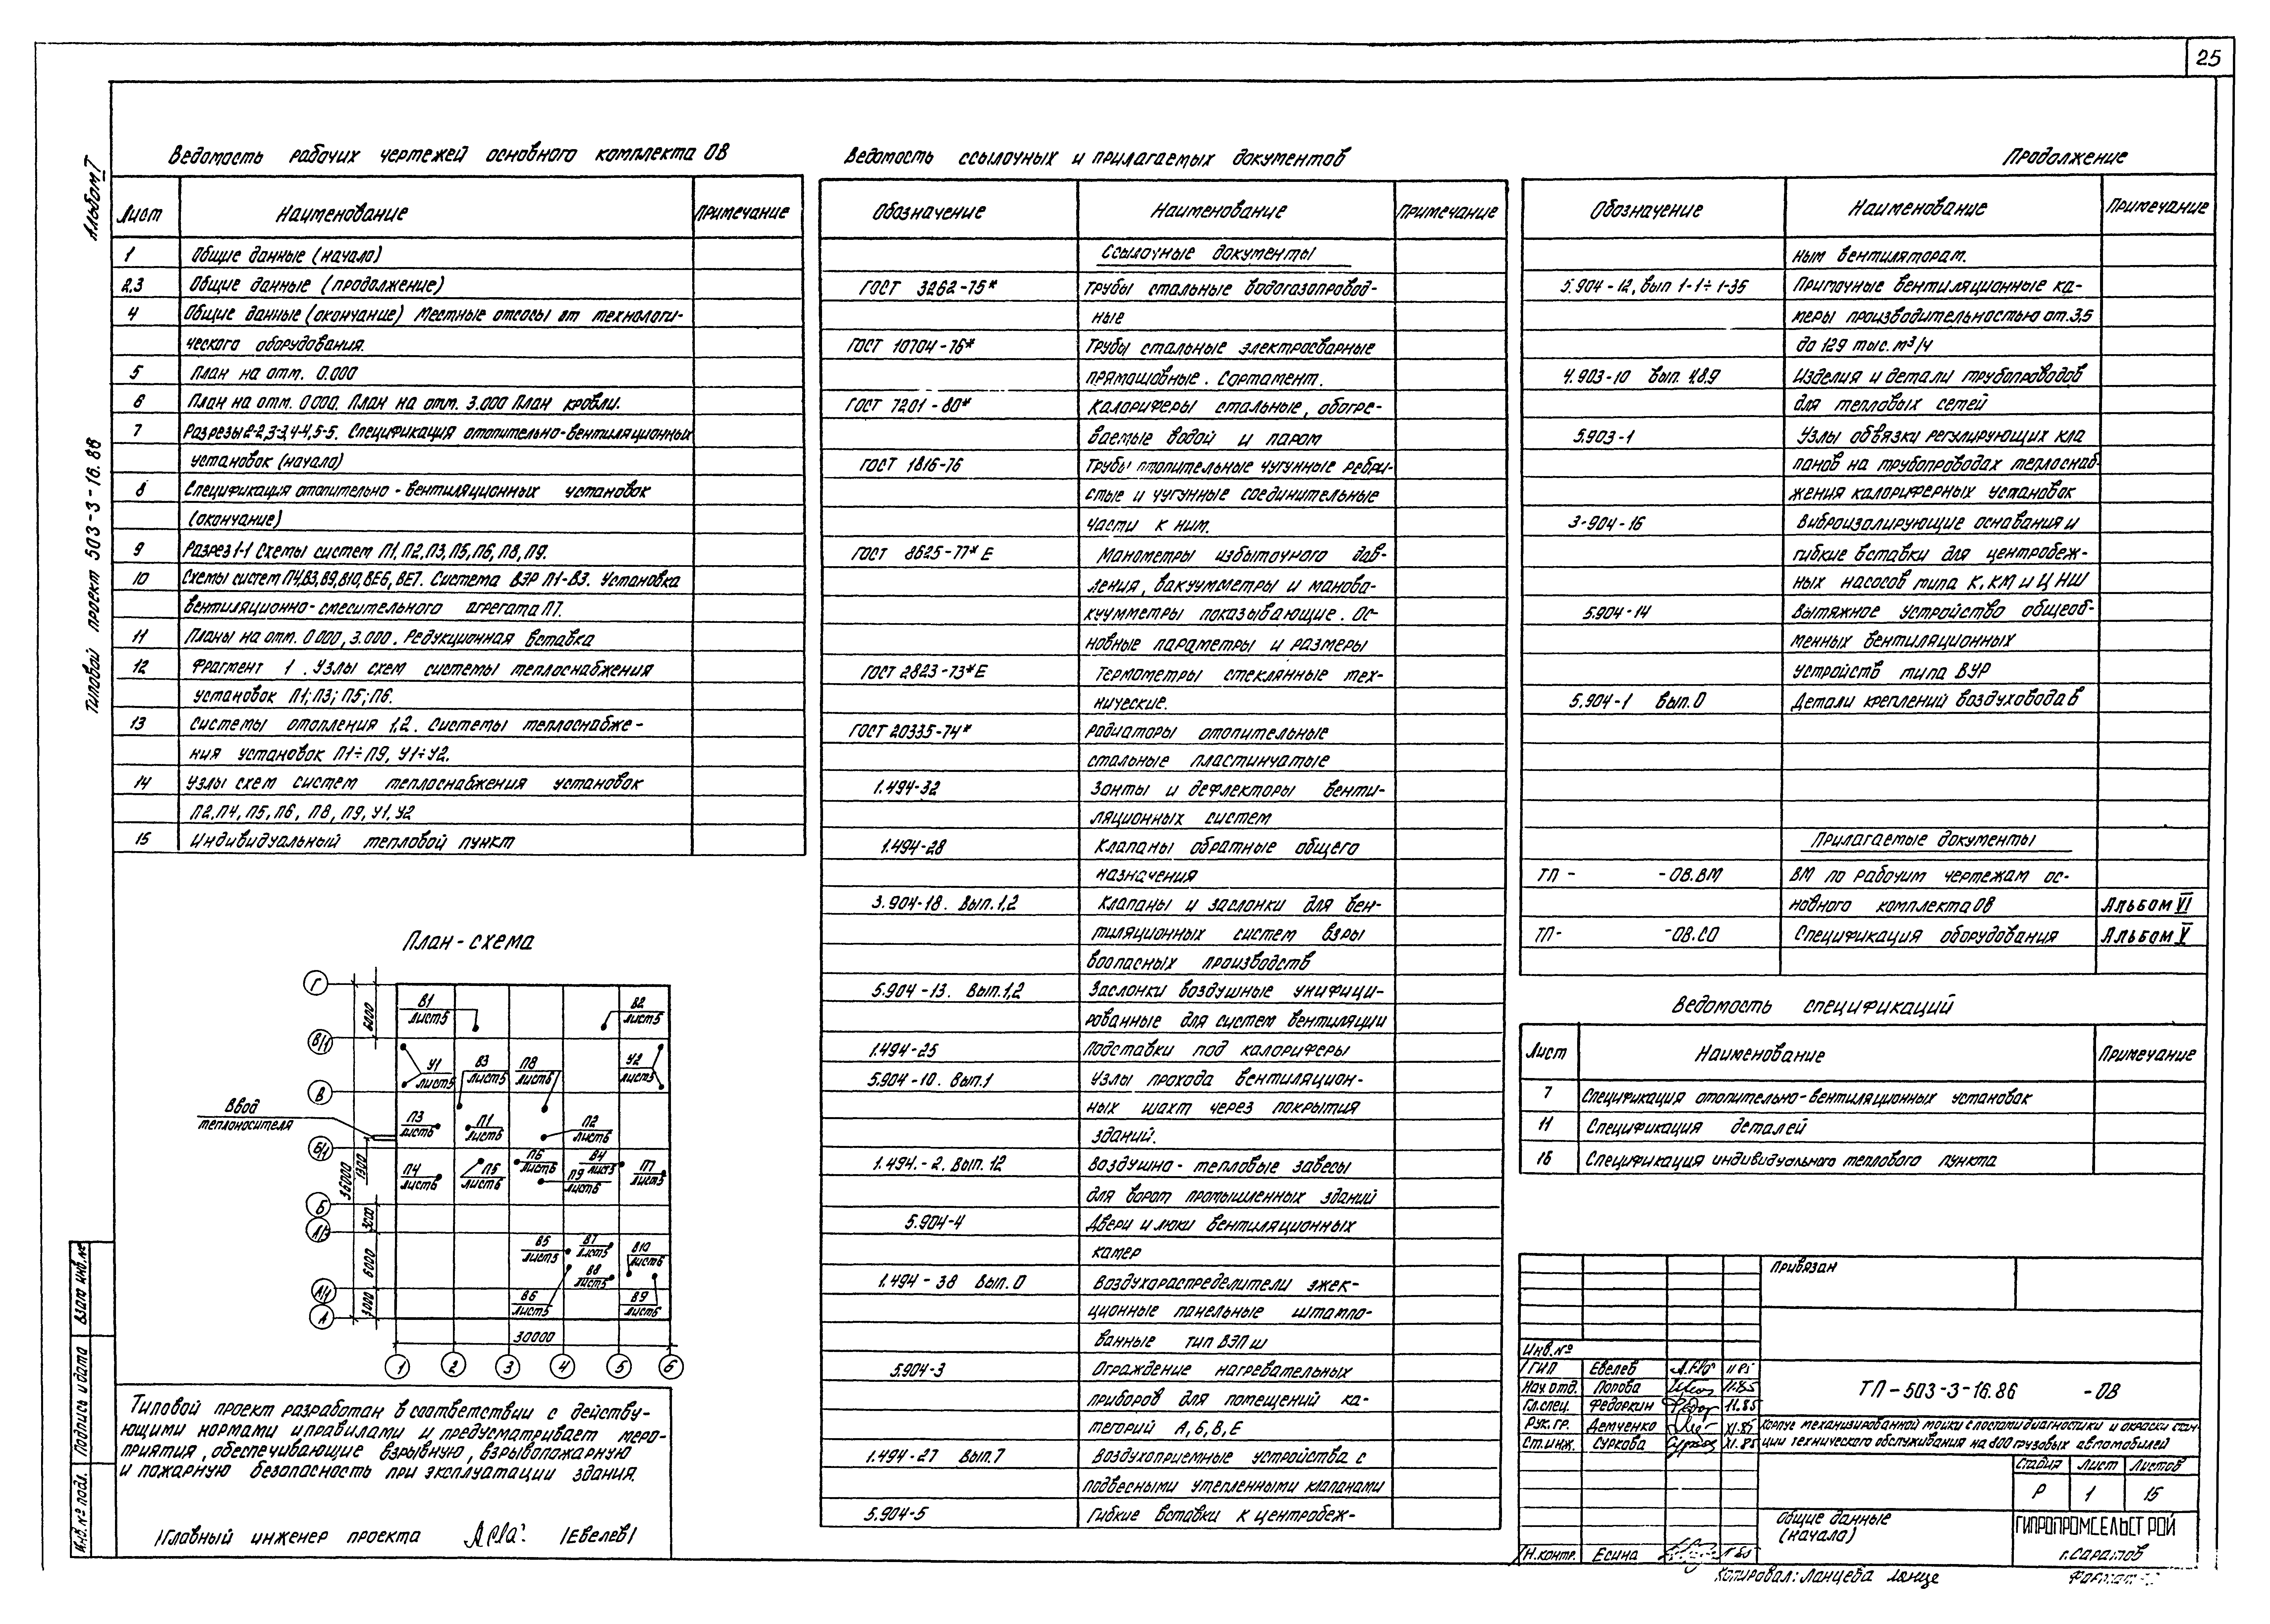 25
Альбом I
Типовой проект 503-3-16.86
Ведомость рабочих чертежей основного комплекта ОВ
Лист Наименование Примечание
1 Общие данные (начало)
2,3 Общие данные (продолжение)
4 Общие данные (окончание) Местные отсосы от технологи-
ческого оборудования.
5 План на отм. 0.000
6 План на отм. 0.000. План на отм. 3.000 План кровли.
7 Разрезы 2-2, 3-3, 4-4, 5-5. Спецификация отопительно-вентиляционных
установок (начало)
8 Спецификация отопительно-вентиляционных установок
(окончание)
9 Разрез 1-1 Схемы систем П1, П2, П3, П5, П6, П8, П9.
10 Схемы систем П4, В3, В9, В10, ВЕ6, ВЕ7. Система ВЭР П1-В3. Установка
вентиляционно-смесительного агрегата П7.
11 Планы на отм. 0.000, 3.000. Редукционная вставка
12 Фрагмент 1. Узлы схем системы теплоснабжения
установок П1; П3; П5; П6.
13 Системы отопления 1,2. Системы теплоснабже-
ния установок П1÷П9, У1÷У2.
14 Узлы схем систем теплоснабжения установок
П2, П4, П5, П6, П8, П9, У1, У2
15 Индивидуальный тепловой пункт
План-схема
Г
В/1
В
Б/1
Б
А/3
А/1
А
6000
36000
1300
3000
6000
3000
30000
1 2 3 4 5 6
Ввод
теплоносителя
В1
лист5
В2
лист5
У1
лист5
В3
лист5
П8
лист6
У2
лист5
П3
лист6
П1
лист6
П2
лист6
П4
лист6
П5
лист6
П6
лист6
П9
лист6
В4
лист5
П7
лист5
В5
лист5
В7
лист5
В10
лист6
В8
лист5
В6
лист5
В9
лист6
Типовой проект разработан в соответствии с действу-
ющими нормами и правилами и предусматривает меро-
приятия, обеспечивающие взрывную, взрывопожарную
и пожарную безопасность при эксплуатации здания.
/Главный инженер проекта /Евелев/
Взам инв.№
Подпись и дата
Инв.№ подл.
Ведомость ссылочных и прилагаемых документов
Обозначение Наименование Примечание
Ссылочные документы
ГОСТ 3262-75* Трубы стальные водогазопровод-
ные
ГОСТ 10704-76* Трубы стальные электросварные
прямошовные. Сортамент.
ГОСТ 7201-80* Калориферы стальные, обогре-
ваемые водой и паром
ГОСТ 1816-76 Трубы отопительные чугунные ребри-
стые и чугунные соединительные
части к ним.
ГОСТ 8625-77*Е Манометры избыточного дав-
ления, вакуумметры и манова-
куумметры показывающие. Ос-
новные параметры и размеры
ГОСТ 2823-73*Е Термометры стеклянные тех-
нические.
ГОСТ 20335-74* Радиаторы отопительные
стальные пластинчатые
1.494-32 Зонты и дефлекторы венти-
ляционных систем
1.494-28 Клапаны обратные общего
назначения
3.904-18. Вып.1,2 Клапаны и заслонки для вен-
тиляционных систем взры
воопасных производств
5.904-13. Вып.1,2 Заслонки воздушные унифици-
рованные для систем вентиляции
1.494-25 Подставки под калориферы
5.904-10. Вып.1 Узлы прохода вентиляцион-
ных шахт через покрытия
зданий.
1.494.-2. Вып. 12 Воздушно-тепловые завесы
для ворот промышленных зданий
5.904-4 Двери и люки вентиляционных
камер
1.494-38 Вып.0 Воздухораспределители эжек-
ционные панельные штампо-
ванные тип ВЭПш
5.904-3 Ограждение нагревательных
приборов для помещений ка-
тегорий А, Б, В, Е
1.494-27 Вып.7 Воздухоприемные устройства с
подвесными утепленными клапанами
5.904-5 Гибкие вставки к центробеж-
Продолжение
Обозначение Наименование Примечание
ным вентиляторам.
5.904-12, вып 1-1÷1-35 Приточные вентиляционные ка-
меры производительностью от 3,5
до 129 тыс. м³/ч
4.903-10 Вып. 4.8.9 Изделия и детали трубопроводов
для тепловых сетей
5.903-1 Узлы обвязки регулирующих кла
панов на трубопроводах теплоснаб-
жения калориферных установок
3-904-16 Виброизолирующие основания и
гибкие вставки для центробеж-
ных насосов типа К, КМ и ЦНШ
5.904-14 Вытяжное устройство общеоб-
менных вентиляционных
устройств типа ВУР
5.904-1 Вып.0 Детали креплений воздуховодов
Прилагаемые документы
ТП - -ОВ.ВМ ВМ по рабочим чертежам ос-
новного комплекта ОВ Альбом VI
ТП- -ОВ.СО Спецификация оборудования Альбом V
Ведомость спецификаций
Лист Наименование Примечание
7 Спецификация отопительно-вентиляционных установок
11 Спецификация деталей
16 Спецификация индивидуального теплового пункта
Привязан
Инв.№
/ГИП Евелев 11 85
Нач отд. Попова 11.85
Гл.спец. Федоркин 11.85
Рук.гр. Демченко XI.85
Ст.инж. Суркова XI.85
Н.контр. Есина
ТП-503-3-16.86 -ОВ
Корпус механизированной мойки с постами диагностики и окраски стан-
ции технического обслуживания на 600 грузовых автомобилей
Стадия Лист Листов
Р 1 15
Общие данные
(начало)
ГИПРОПРОМСЕЛЬСТРОЙ
г.Саратов
Копировал: Ланцева
Формат